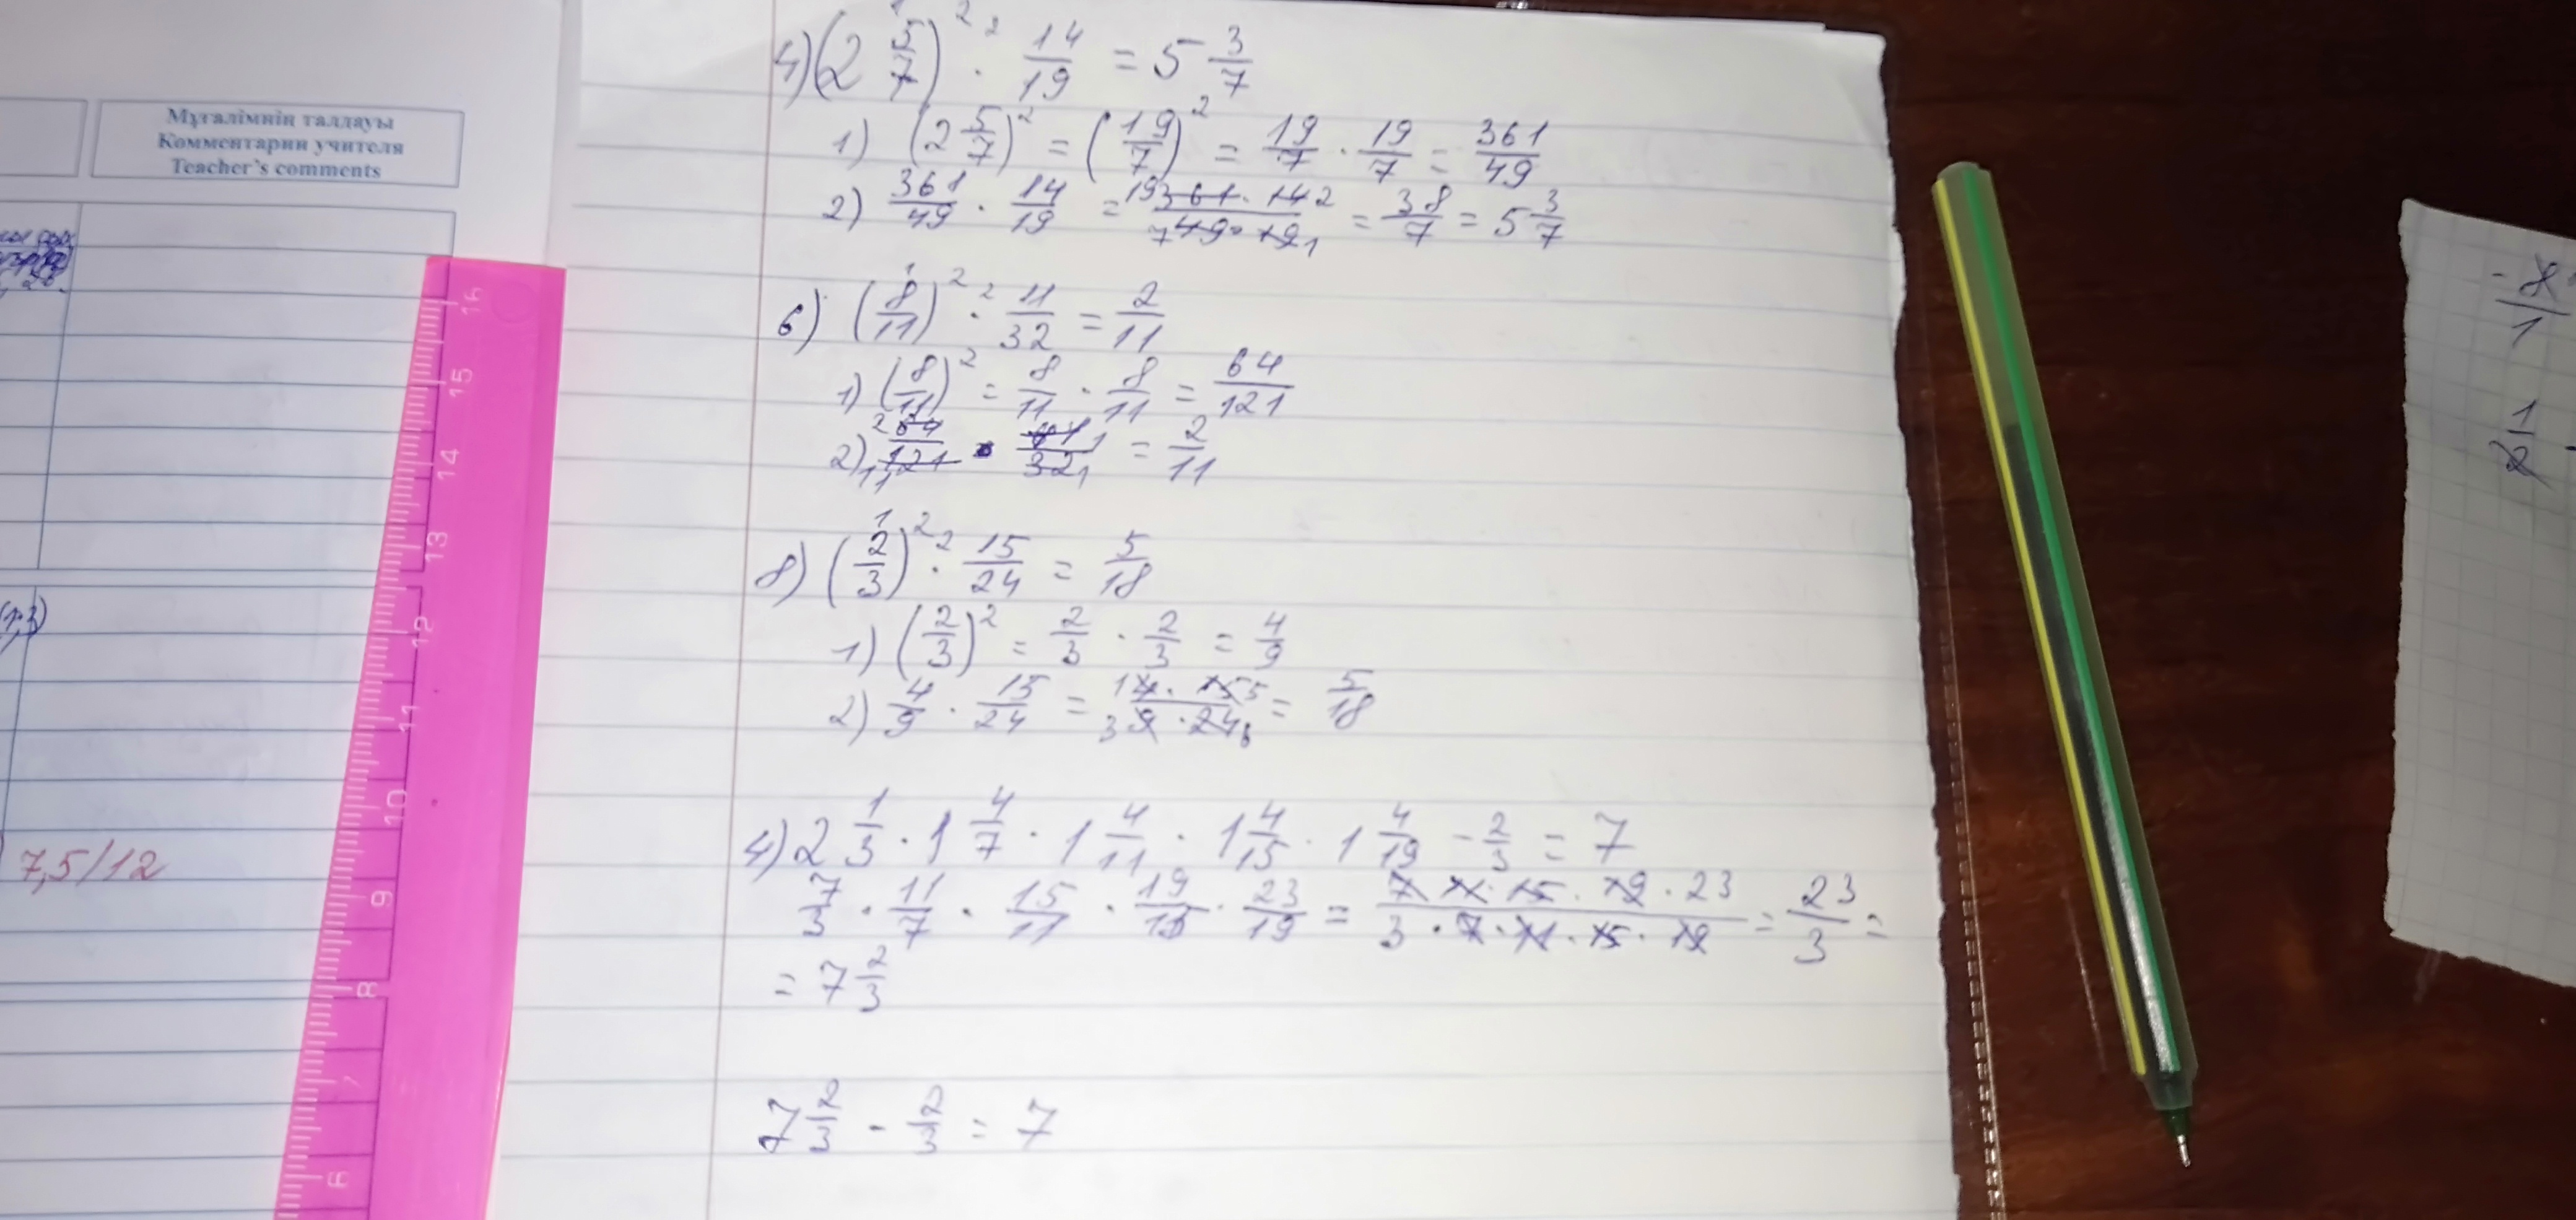 Мұғалімнің талдауы
Комментарии учителя
Teacher's comments
7,5/12
4) (2 5/7)² · 14/19 = 5 3/7
1) (2 5/7)² = (19/7)² = 19/7 · 19/7 = 361/49
2) 361/49 · 14/19 = 19 361 · 14 2 / 7 49 · 19 1 = 38/7 = 5 3/7
6) (8/11)² · 11/32 = 2/11
1) (8/11)² = 8/11 · 8/11 = 64/121
2) 2 64 / 11 121 · 11 1 / 32 1 = 2/11
8) (2/3)² · 15/24 = 5/18
1) (2/3)² = 2/3 · 2/3 = 4/9
2) 4/9 · 15/24 = 1 4 · 15 5 / 3 9 · 24 6 = 5/18
4) 2 1/3 · 1 4/7 · 1 4/11 · 1 4/15 · 1 4/19 - 2/3 = 7
7/3 · 11/7 · 15/11 · 19/15 · 23/19 = 7 · 11 · 15 · 19 · 23 / 3 · 7 · 11 · 15 · 19 = 23/3 =
= 7 2/3
7 2/3 - 2/3 = 7
16
15
14
13
12
11
10
9
8
7
6
- 8/1
1/2